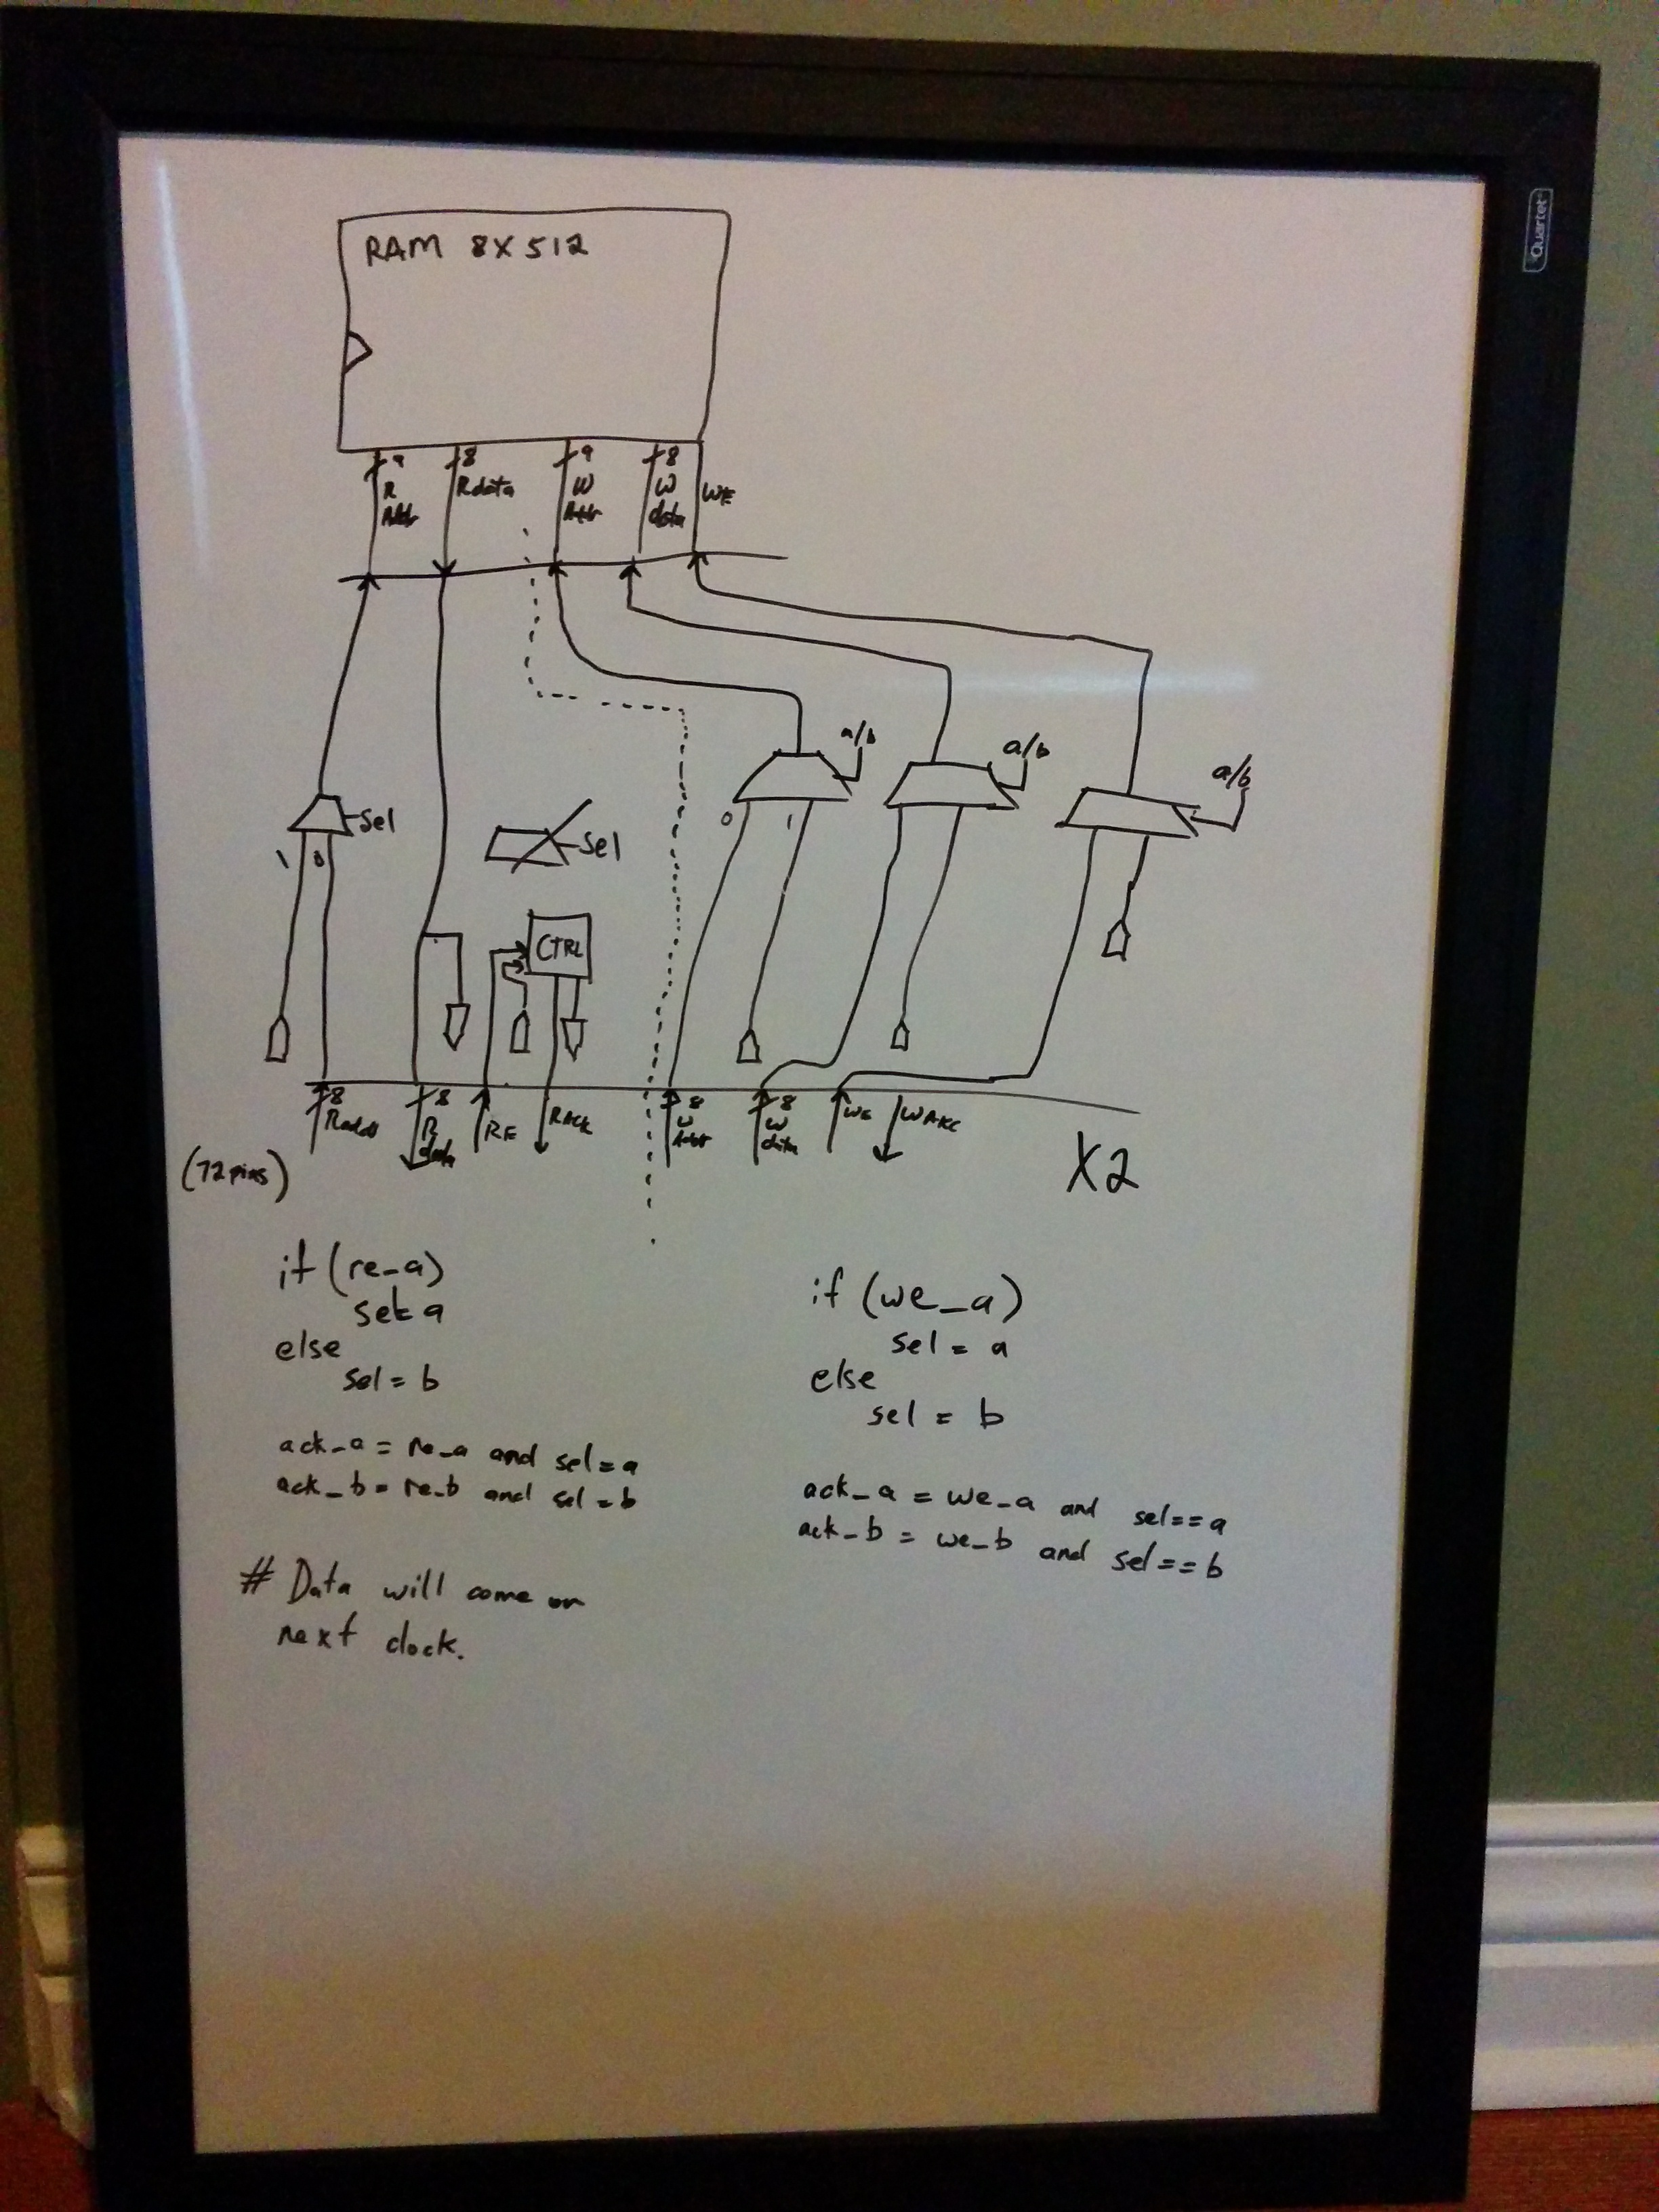 Quartet
RAM 8X512
9
R
Addr
8
Rdata
9
W
Addr
8
W
data
WE
a/b
a/b
a/b
Sel
1 0
Sel
0 1
CTRL
8
Raddr
8
R
data
RE
RACK
8
W
Addr
8
W
data
WE
WAKC
(72pins)
X2
if (re_a)
sel= a
else
sel= b
ack_a = re_a and sel=a
ack_b = re_b and sel=b
# Data will come on
next clock.
if (we_a)
sel = a
else
sel = b
ack_a = we_a and sel==a
ack_b = we_b and sel==b